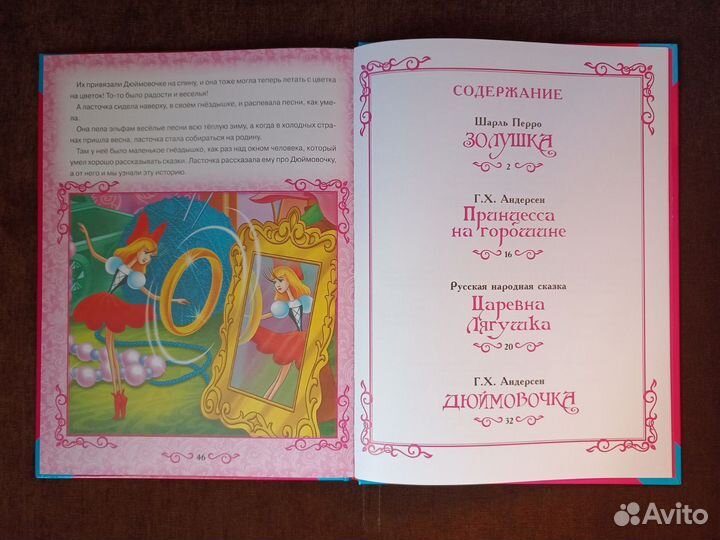 Их привязали Дюймовочке на спину, и она тоже могла теперь летать с цветка
на цветок! То-то было радости и веселья!
А ласточка сидела наверху, в своём гнёздышке, и распевала песни, как уме-
ла.
Она пела эльфам весёлые песни всю тёплую зиму, а когда в холодных стра-
нах пришла весна, ласточка стала собираться на родину.
Там у неё было маленькое гнёздышко, как раз над окном человека, который
умел хорошо рассказывать сказки. Ласточка рассказала ему про Дюймовочку,
а от него и мы узнали эту историю.
46
СОДЕРЖАНИЕ
Шарль Перро
ЗОЛУШКА
2
Г.Х. Андерсен
Принцесса
на горошине
16
Русская народная сказка
Царевна
Лягушка
20
Г.Х. Андерсен
ДЮЙМОВОЧКА
32
Avito